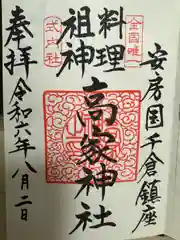 安房国千倉鎮座
全国唯一
料理
祖神
式内社
高家神社
奉拝
令和六年八月二日